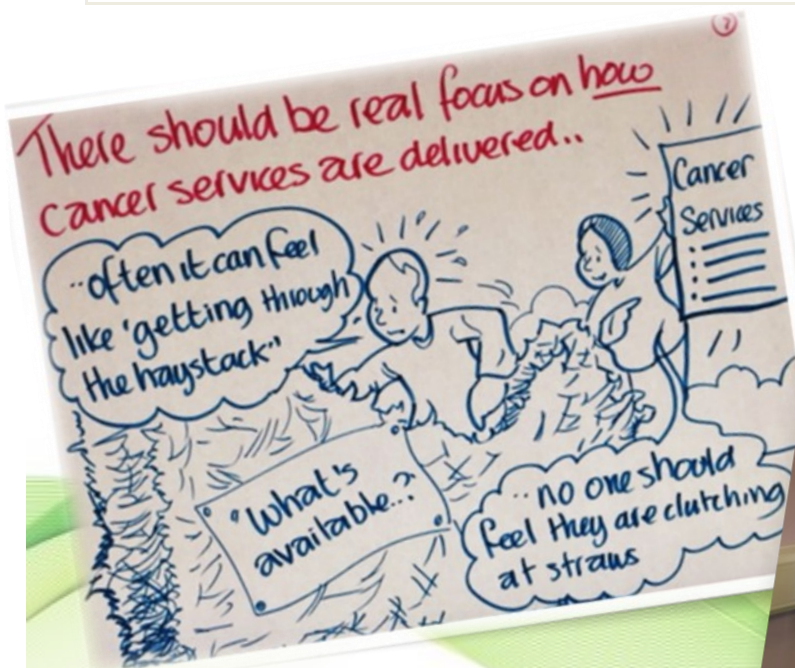 There should be real focus on how
cancer services are delivered..
..often it can feel
like 'getting through
the haystack"
Cancer
Services
"What's
available...?
..no one should
feel they are clutching
at straws